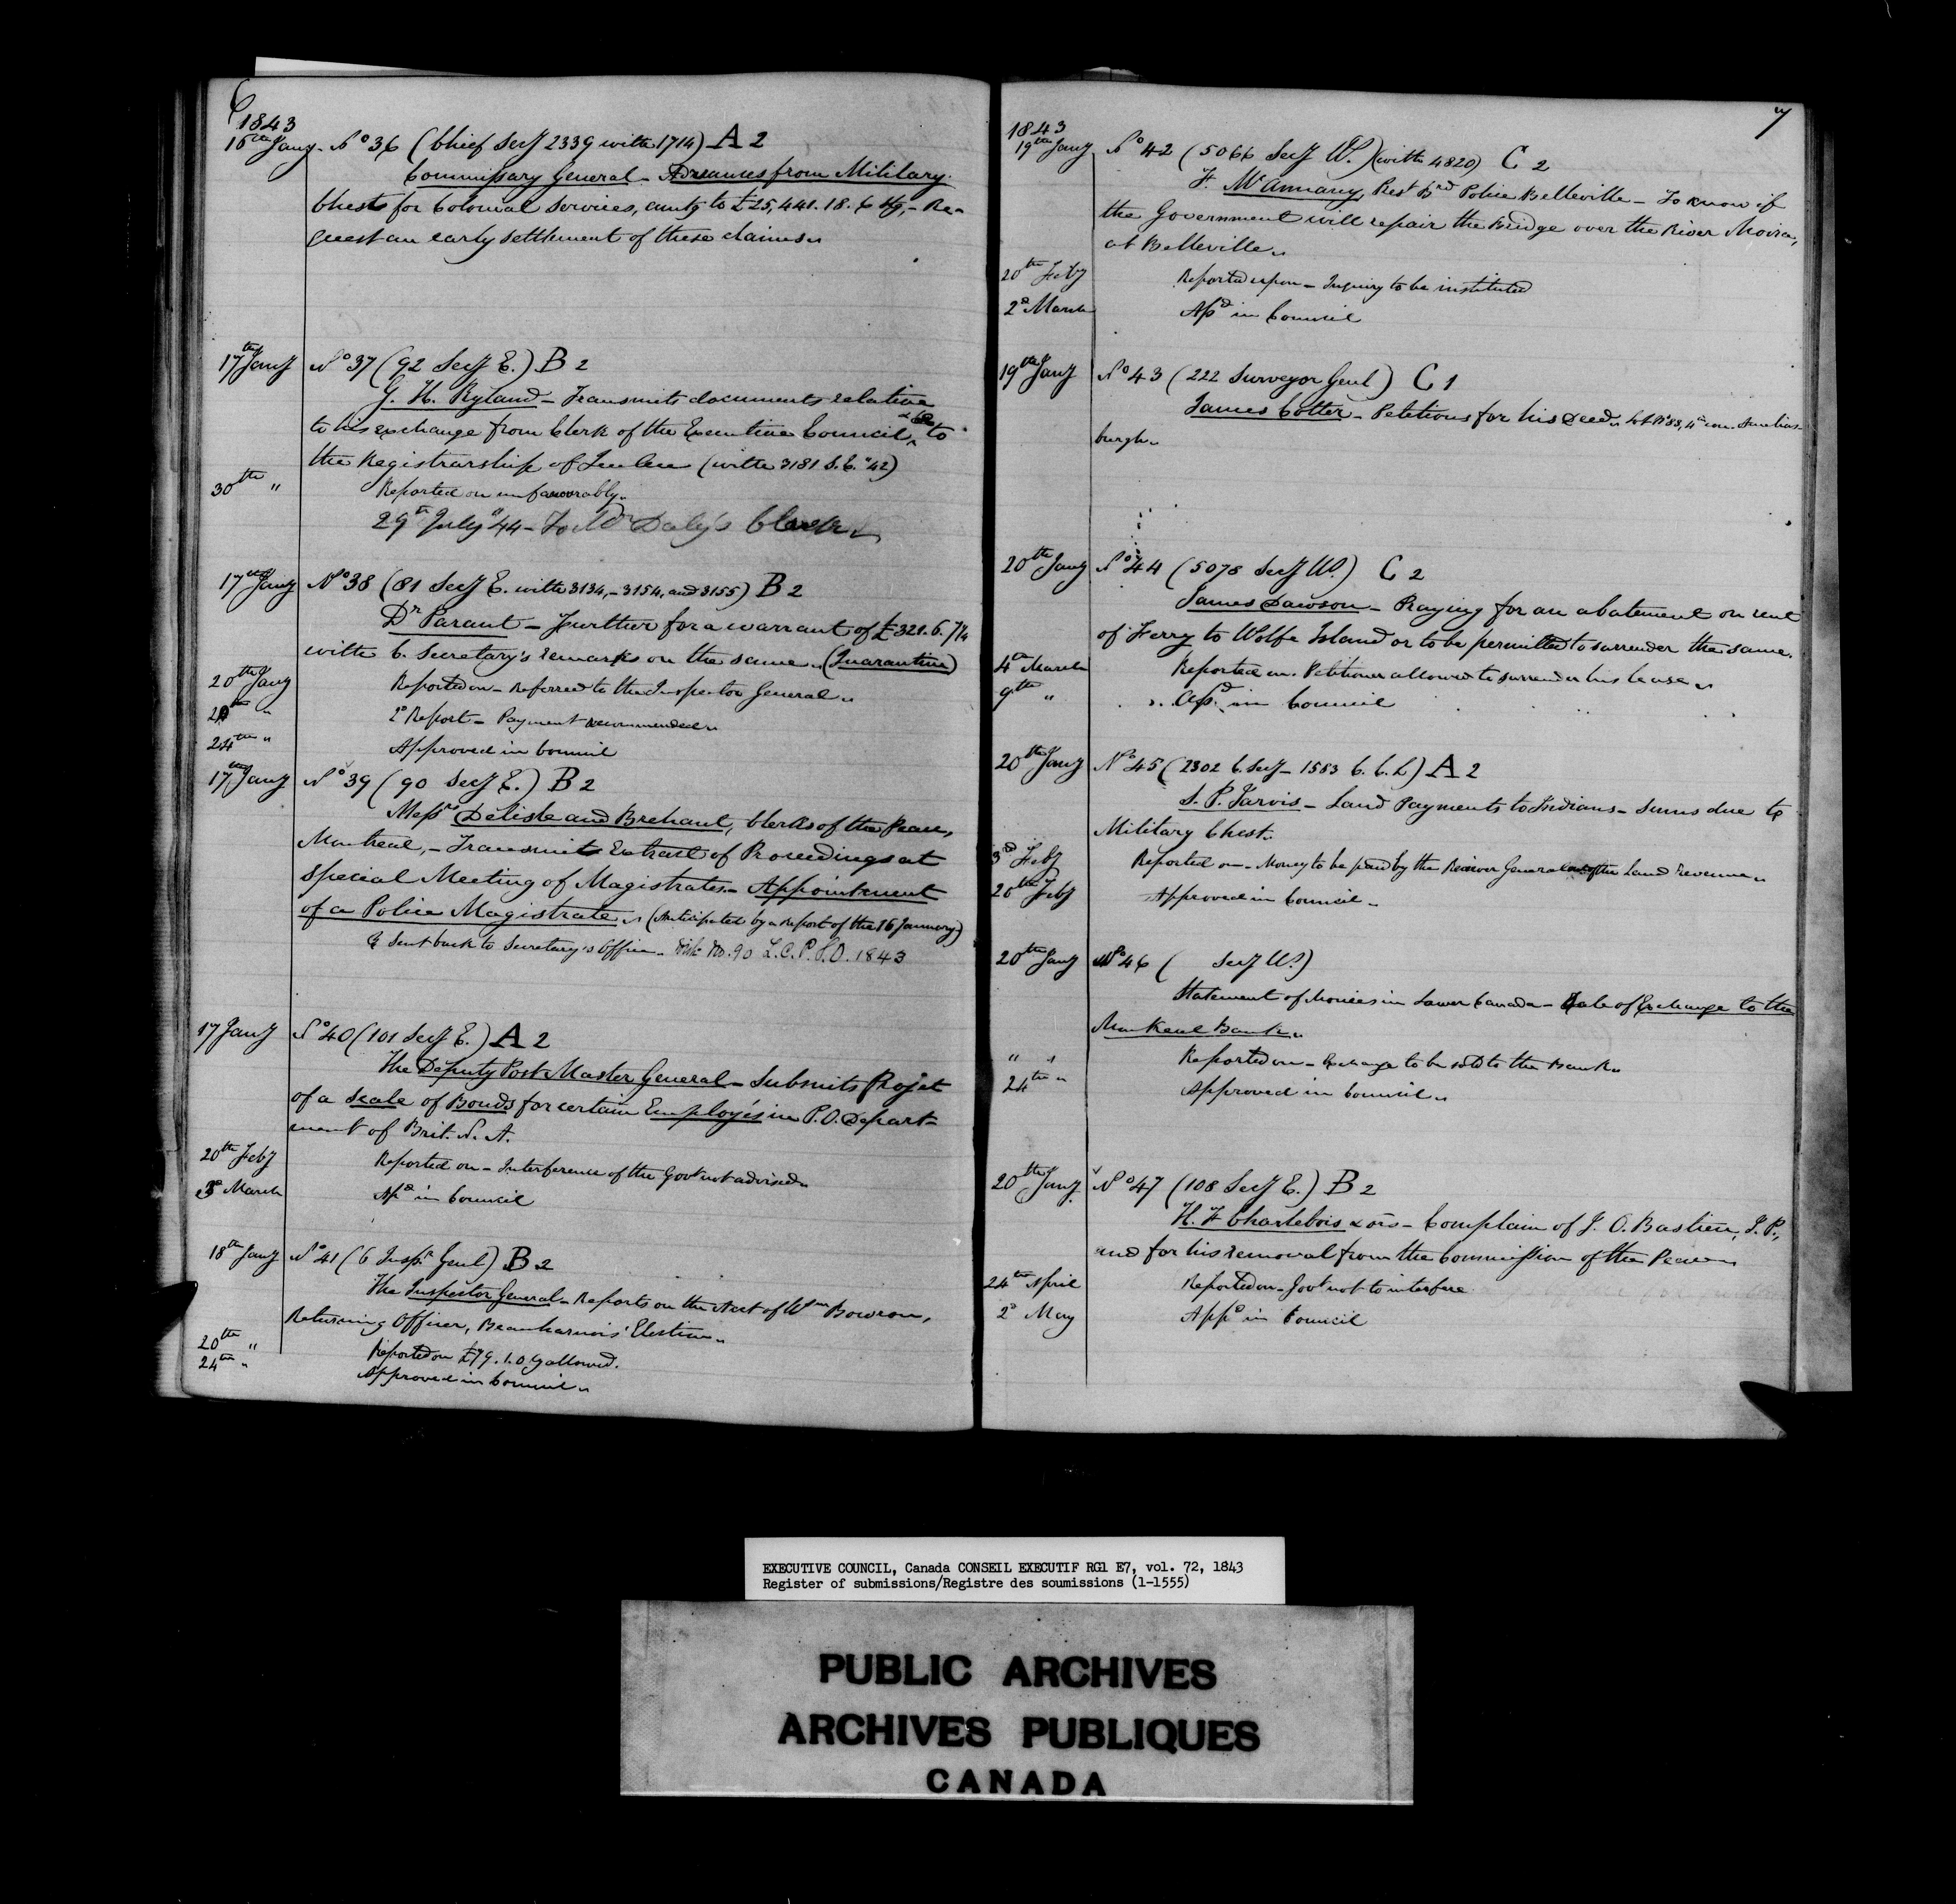 6
1843
16th Jany. No 36 (Chief Secy 2339 with 1714) A 2
Commissary General - Advances from Military
Chests for Colonial Services, amtg to £25,441.18.6 Stg, - Re-
quest an early settlement of these claims.
17th Jany No 37 (92 Secy E.) B 2
G. H. Ryland - Transmits documents relative
to his exchange from Clerk of the Executive Council, to
the Registrarship of Quebec (with 3181 S.E. "42)
30th " Reported on unfavourably.
29th July "44 - To Mr Daly's Clerk
17th Jany No 38 (81 Secy E. with 3134, - 3154, and 3155) B 2
Dr Parant - Further for a warrant of £321.6.7¼
with C. Secretary's remarks on the same. (Quarantine)
20th Jany Reported on - Referred to the Inspector General.
" 2d Report - Payment recommended.
24th " Approved in Council
17th Jany No 39 (90 Secy E.) B 2
Messrs Delisle and Brehaut, Clerks of the Peace,
Montreal, - Transmit Extract of Proceedings at
Special Meeting of Magistrates. - Appointment
of a Police Magistrate. (Anticipated by a Report of the 16 January)
& Sent back to Secretary's Office. Vide No. 90 L.C.P.S.O. 1843
17 Jany No 40 (101 Secy E.) A 2
The Deputy Post Master General - Submits Projet
of a Scale of Bonds for certain Employés in P.O. Depart-
ment of Brit. N. A.
20th Feby Reported on - Interference of the Govt not advised.
2d March Apd in Council
18th Jany No 41 (6 Inspr Genl) B 2
The Inspector General - Reports on the Acct of Wm Bowron,
Returning Officer, Beauharnois' Election.
20th " Reported on £79.1.0 allowed.
24th " Approved in Council.
7
1843
19th Jany No 42 (5066 Secy W.) (with 4820) C 2
F. McAnnany, Prest Brd Police Belleville - To know if
the Government will repair the Bridge over the River Moira,
at Belleville.
20th Feby Reported upon - Inquiry to be instituted
2d March Apd in Council
19th Jany No 43 (222 Surveyor Genl) C 1
James Cotter - Petitions for his Deed. Lot No 88, 4th con. Amelias-
burgh.
20th Jany No 44 (5078 Secy W.) C 2
James Dawson - Praying for an abatement on rent
of Ferry to Wolfe Island or to be permitted to surrender the same.
4th March Reported on. Petitioner allowed to surrender his lease.
9th " Apd. in Council
20th Jany No 45 (2302 C. Secy - 1583 C. C. L) A 2
S. P. Jarvis - Land Payments to Indians - Sums due to
Military Chest.
3d Feby Reported on - Money to be paid by the Receiver General out of the Land Revenue.
20th Feby Approved in Council.
20th Jany No 46 ( Secy W.)
Statement of Monies in Lower Canada - Sale of Exchange to the
Montreal Bank.
" " Reported on - Exchange to be sold to the Bank.
24th " Approved in Council.
20th Jany No 47 (108 Secy E.) B 2
H. F Charlebois & ors - Complain of J. O. Bastien, J. P.,
and for his removal from the Commission of the Peace
24th April Reported on - Govt not to interfere
2d May Appd in Council
EXECUTIVE COUNCIL, Canada CONSEIL EXECUTIF RG1 E7, vol. 72, 1843
Register of submissions/Registre des soumissions (1-1555)
PUBLIC ARCHIVES
ARCHIVES PUBLIQUES
CANADA